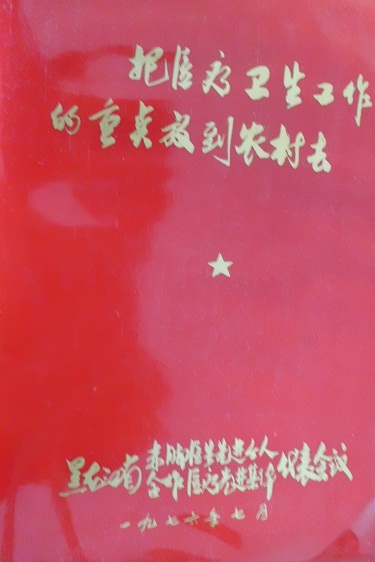 把医疗卫生工作
的重点放到农村去
黑龙江省
赤脚医生先进个人
合作医疗先进集体
代表会议
一九七六年七月